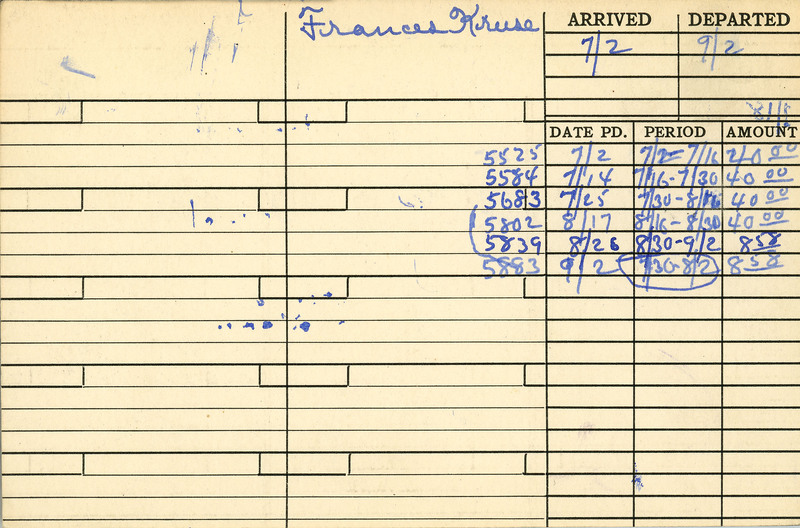 Frances Kruse
ARRIVED DEPARTED
7/2 9/2
DATE PD. PERIOD AMOUNT
5525 7/2 7/2-7/16 40 00
5584 7/14 7/16-7/30 40 00
5683 7/25 7/30-8/16 40 00
5802 8/17 8/16-8/30 40 00
5839 8/26 8/30-9/2 8 58
5883 9/2 7/30-8/2 8 58